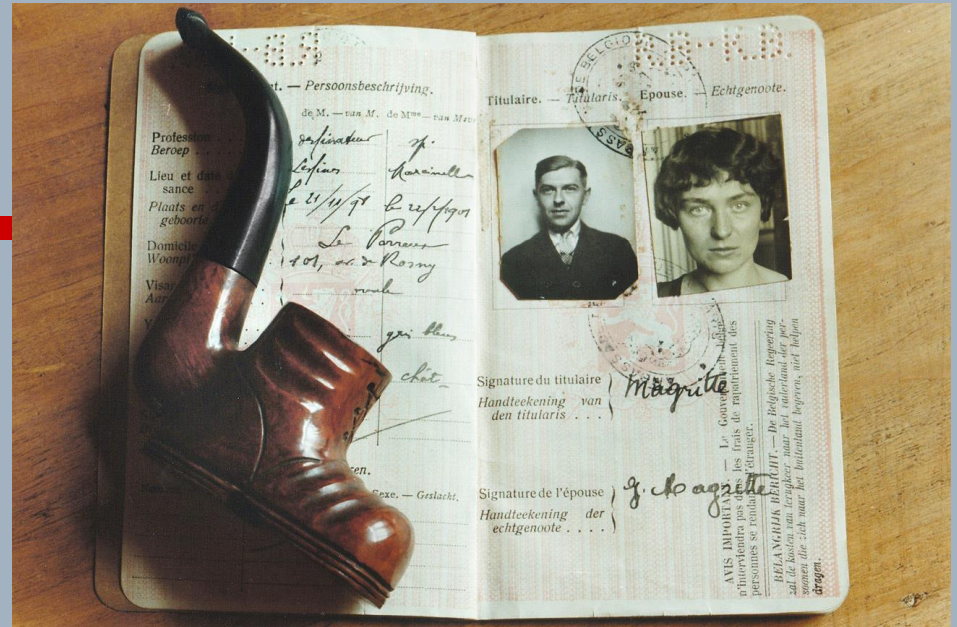 — Persoonsbeschrijving.
de M. — van M. de Mme — van Mevr
Profession
Beroep . . .
dessinateur
Lieu et date
sance . .
Lessines Marcinelle
Plaats en
geboorte
le 21/11/98
Domicile
Le Perreux
101, av. de Rosny
Visa
ovale
gris bleus
chât
Sexe. — Geslacht.
Titulaire. — Titularis.
Epouse. — Echtgenoote.
Signature du titulaire
Handteekening van
den titularis . . . .
Magritte
Signature de l'épouse
Handteekening der
echtgenoote . . . . .
G. Magritte
AVIS IMPORTANT. — Le Gouvernement belge
n'interviendra pas dans les frais de rapatriement des
personnes se rendant à l'étranger.
BELANGRIJK BERICHT. — De Belgische Regeering
zal de kosten van terugkeer naar het vaderland der per-
soonen die zich naar het buitenland begeven, niet helpen
dragen.